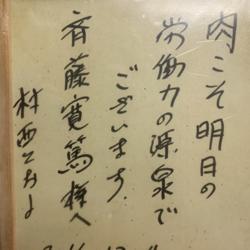 肉こそ明日の
労働力の源泉で
ございます.
斉藤寛篤様へ
村西とおる